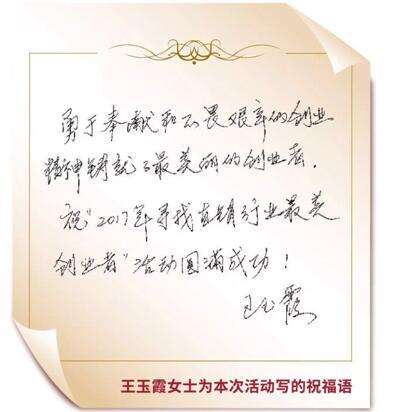 勇于奉献和不畏艰辛的创业
精神铸就了最美丽的创业者.
祝“2017年寻找直销行业最美
创业者”活动圆满成功!
王玉霞
王玉霞女士为本次活动写的祝福语